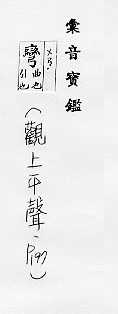 彙音寶鑑
ㄨㄢ
彎 曲也 引也
(觀上平聲, P197)